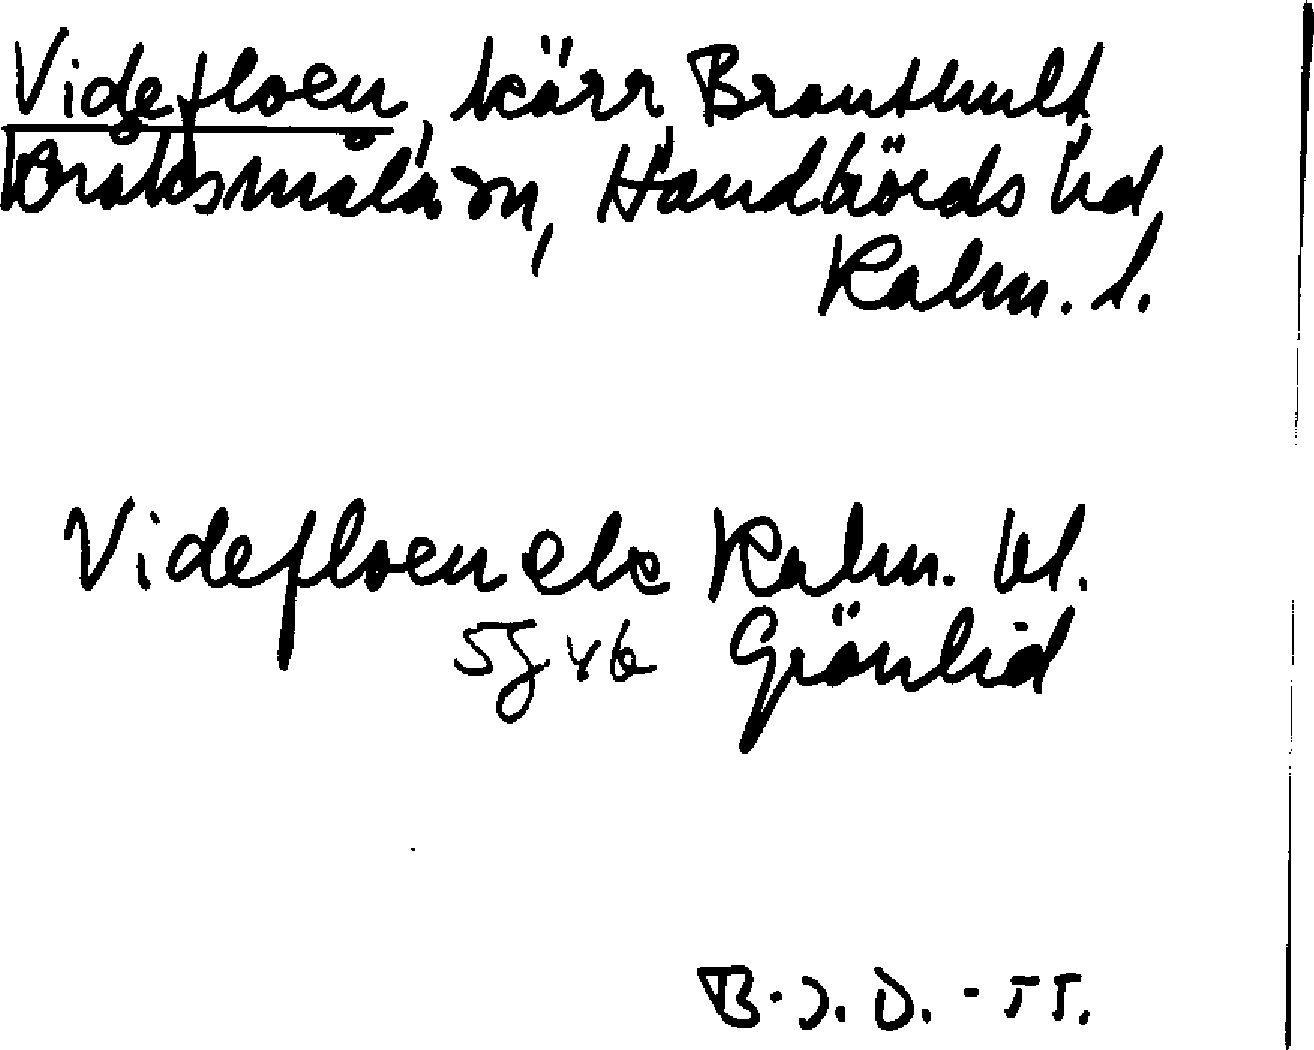 Videfloen, kärr, Brauthult,
Bråtsmåla sn, Handbörds hd,
Kalm. l.
Videfloen ek Kalm. bl.
5G 4b Grönlid
B.J.D. - 55.